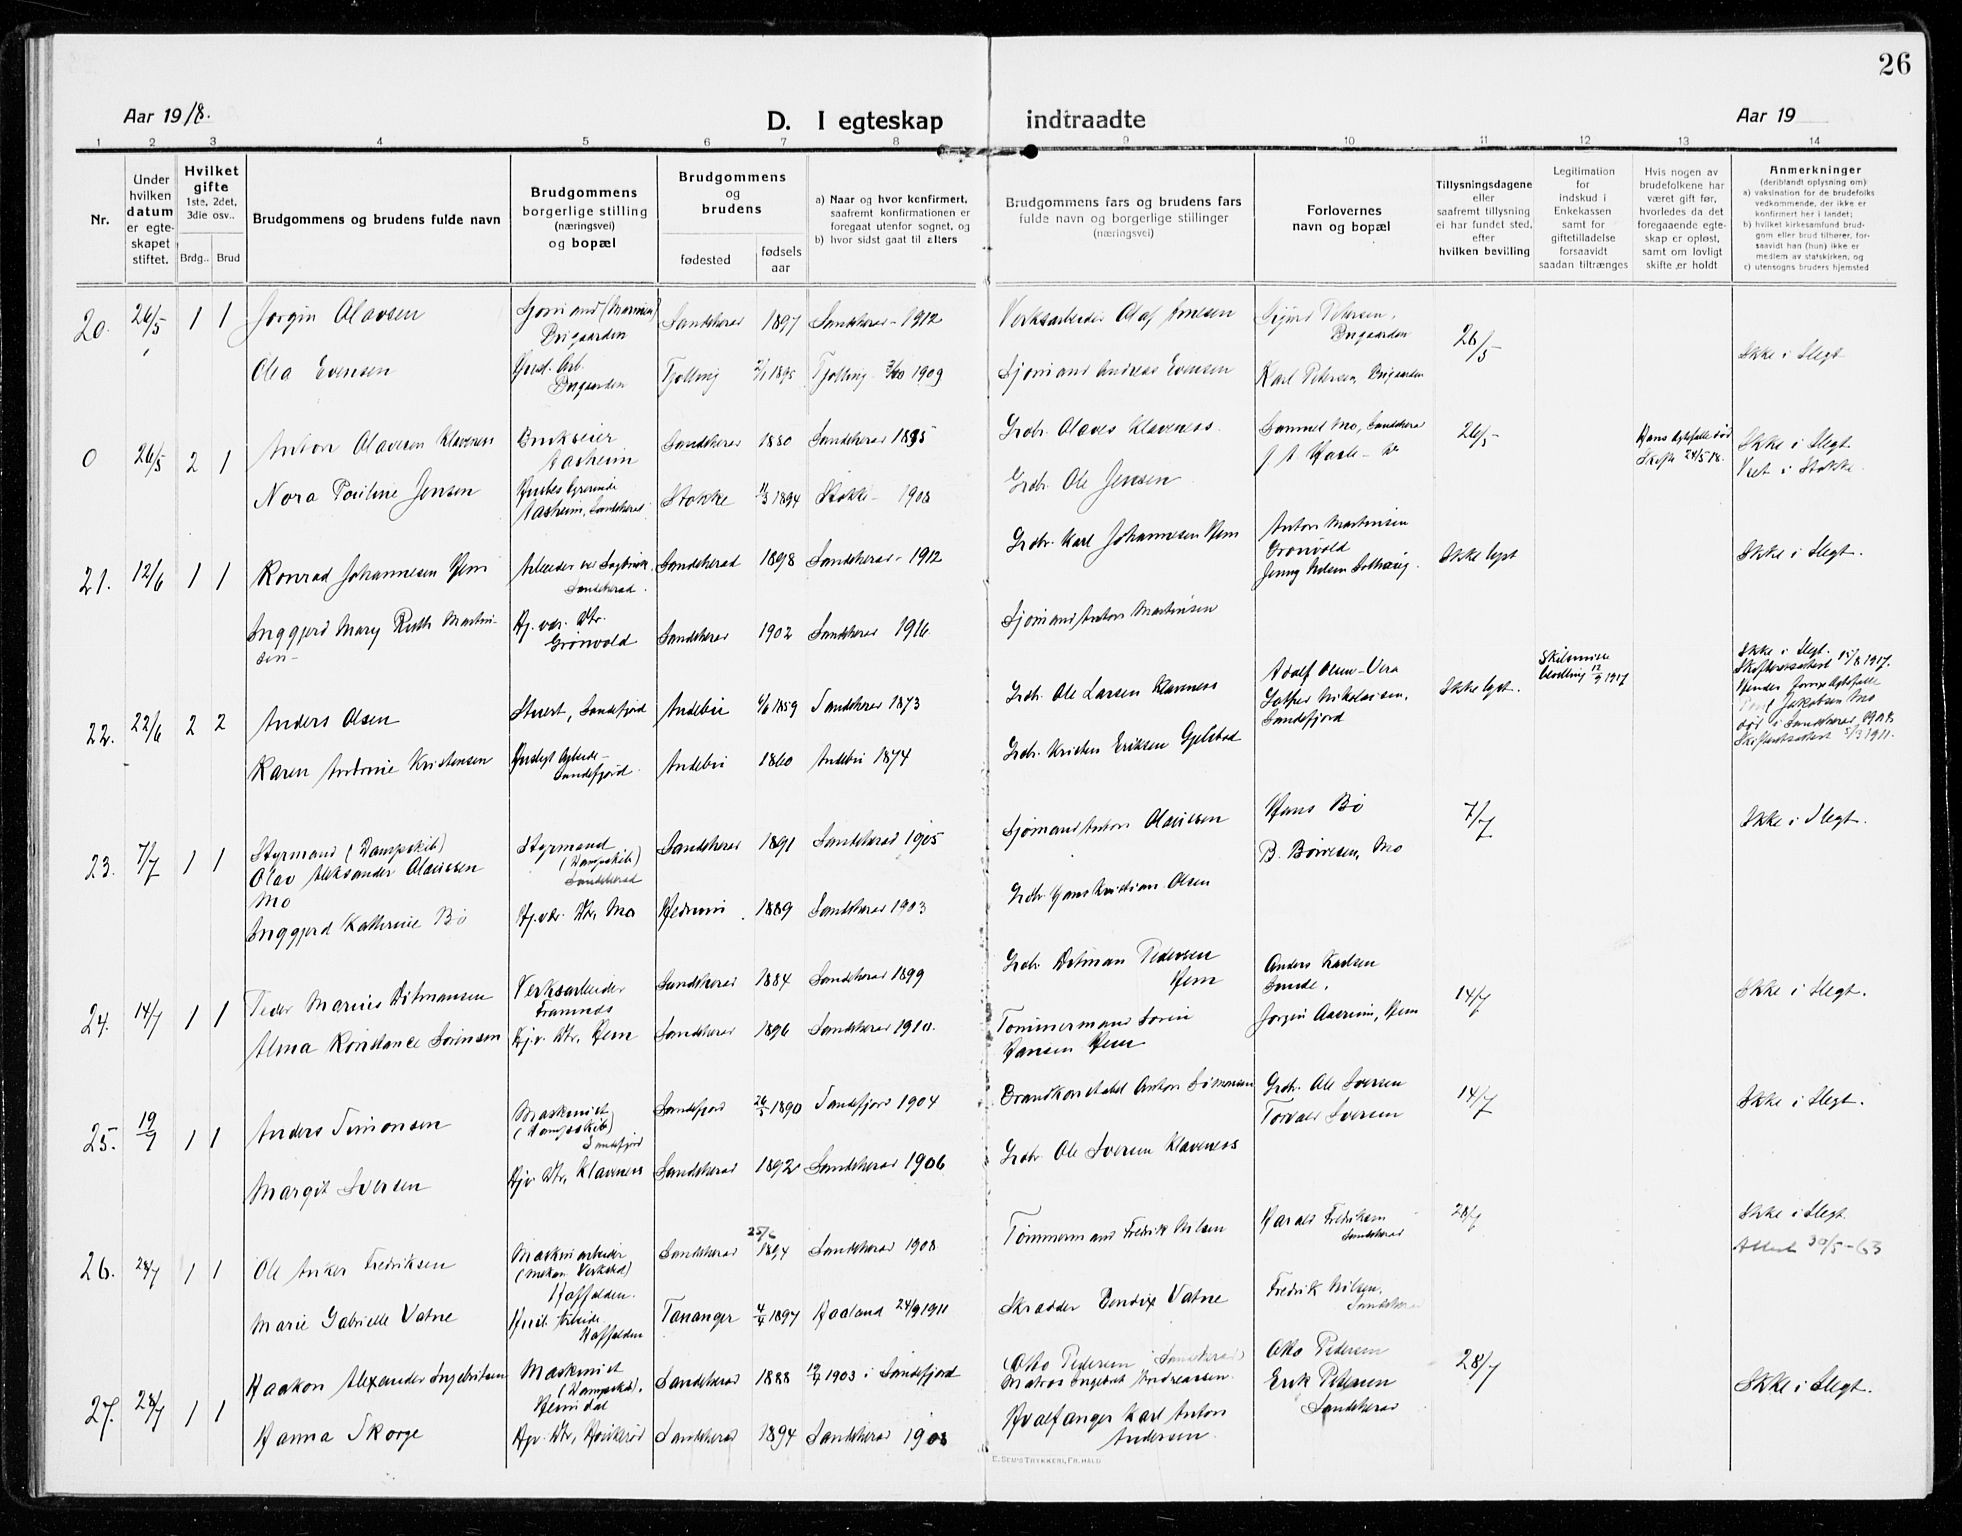 26
Aar 1918.
D. I egteskap indtraadte
Aar 19
1 2 3 4 5 6 7 8 9 10 11 12 13 14
Nr.
Under
hvilken
datum
er egte-
skapet
stiftet.
Hvilket
gifte
1ste, 2det,
3die osv..
Brdg.. Brud
Brudgommens og brudens fulde navn
Brudgommens
borgerlige stilling
(næringsvei)
og bopæl
Brudgommens
og
brudens
fødested
fødsels
aar
a) Naar og hvor konfirmert,
saafremt konfirmationen er
foregaat utenfor sognet, og
b) hvor sidst gaat til alters
Brudgommens fars og brudens fars
fulde navn og borgerlige stillinger
(næringsvei)
Forlovernes
navn og bopæl
Tillysningsdagene
eller
saafremt tillysning
ei har fundet sted,
efter
hvilken bevilling
Legitimation
for
indskud i
Enkekassen
samt for
giftetilladelse
forsaavidt
saadan tiltrænges
Hvis nogen av
brudefolkene har
været gift før,
hvorledes da det
foregaaende egte-
skap er opløst,
samt om lovligt
skifte er holdt
Anmerkninger
(deriblandt oplysning om)
a) vaksination for de brudefolks
vedkommende, der ikke er
konfirmert her i landet;
b) hvilket kirkesamfund brud-
gom eller brud tilhører, for-
saavidt han (hun) ikke er
medlem av statskirken, og
c) utensogns bruders hjemsted
20. 26/5 1 1 Jørgin Olavsen Sjømand (Marinen) Sandeherad 1897 Sandeherad - 1912 Verksarbeider Olaf 26/5
Olea Evensen Tjølling 2/1 1895 Tjølling 1909 Sjømand Andreas Evensen Karl Petersen Ikke i Slegt
0 26/5 2 1 Anton Olavsen Klavenes Brukseier
Aasheim Sandeherad 1880 Sandeherad 1895 Grdbr. Olaves Klavenes. Samuel Mo, Sandeherad 26/5 Hans egtefælle død
Skifte 24/5 18. Ikke i Slegt.
Viet i Stokke.
Nora Pauline Jensen Aasheim, Sandeherad Stokke 11/3 1894 Stokke - 1908 Grdbr. Ole Jensen
21. 12/6 1 1 Konrad Johannesen Hem Sandeherad. Sandeherad 1898 Sandeherad - 1912 Grdbr. Karl Johannesen Hem Anton Martinsen
Grønvold
Ikke lyst Ikke i Slegt.
Inggjerd Mary Ruth Martin-
sen - Hj. vær. Dtr.
Grønvold Sandeherad 1902 Sandeherad 1916 Sjømand Anton Martinsen
22. 22/6 2 2 Anders Olsen Stuert, Sandefjord Andebu 4/6 1859 Sandeherad 1873 Grdbr. Ole Larsen Klavenes Adolf Olsen - Vera
Nikolaisen,
Sandefjord Ikke lyst. Skilsmisse
bevilling 12/9 1917 Ikke i Slegt.
Skifteretsattest 15/8 1917.
Jakobsen Mo
død i Sandeherad 1908
Skifteretsattest 5/3 1911.
Karen Andrine Kristensen Sandefjord. Andebu 1860 Andebu 1874 Grdbr. Kristen Eriksen Gjelstad
23. 7/7 1 1 Styrmand (Dampskib)
Olav Aleksander Olaussen
Mo Styrmand
(Dampskib)
Sandeherad Sandeherad 1891 Sandeherad 1905 Sjømand Anton Olaussen Hans Bø
B. Børresen, Mo 7/7 Ikke i Slegt.
Inggjerd Kathrine Bø Hj. vær. Dtr, Mo Hedrum 1889 Sandeherad 1903 Grdbr Hans Kristian Olsen
24. 14/7 1 1 Peder Marius Ditmansen Verksarbeider
Framnes Sandeherad 1884 Sandeherad 1899 Grdbr. Ditman Pedersen
Hem Anders Karlsen
Sande,
14/7 Ikke i Slegt.
Alma Konstance Sørensen Hj.v. Dtr, Hem Sandeherad 1896 Sandeherad 1910. Tømmermand Søren
Hansen Hem
25. 19/7 1 1 Anders Simonsen Maskinist
(Dampskib)
Sandefjord Sandefjord 26/5 1890 Sandefjord 1904 Brandkonstabel Anton Simonsen Grdbr. Ole Iversen
Torvald Iversen 14/7 Ikke i Slegt.
Margit Iversen Hjv Dtr, Klavenes Sandeherad 1892 Sandeherad 1906 Grdbr. Ole Iversen Klavenes
26. 28/7 1 1 Ole Anker Fredriksen Maskinarbeider
(mekan. Verksted)
Kaffalden. Sandeherad 25/6 1894 Sandeherad 1908 Tømmermand Fredrik Nilsen Harald Fredriksen
Sandeherad 28/7 Ikke i Slegt
Attest 30/5-63
Marie Gabrielle Vatne Kaffalden Tananger 4/4 1897 Haaland 24/9 1911 Skrædder Bendix Vatne Fredrik Nilsen.
Sandeherad
27. 28/7 1 1 Haakon Alexander Ingebretsen Maskinist
(Dampskib).
Heimdal Sandeherad 1888 1903 i Sandefjord (Otto Pedersen Sandeherad)
Matros Ingebret Andreassen. Otto Pedersen
Erik Petersen
Sandeherad 28/7 Ikke i Slegt.
Hanna Skorge Sandeherad 1894 Sandeherad 1908 Hvalfanger Karl Anton
Andersen.
E. SEM'S TRYKKERI, FR.HALD